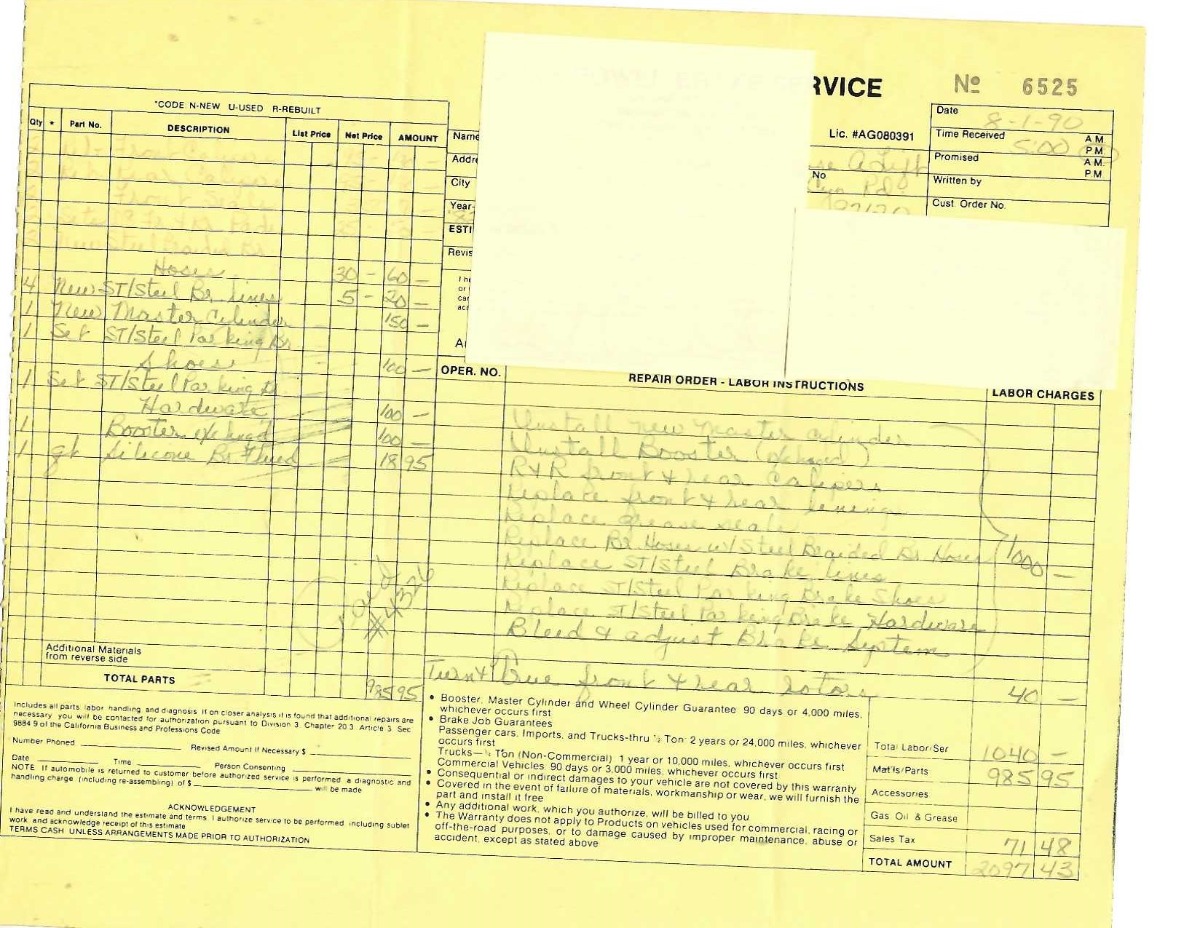 RVICE
Nº 6525
*CODE N-NEW U-USED R-REBUILT
Qty * Part No. DESCRIPTION List Price Net Price AMOUNT
Hoses 30 - 60 -
4 New ST/Steel Br Lines 5 - 20 -
1 New Master Cylinder 150 -
1 Set ST/Steel Parking Br
Shoes 100 -
1 Set ST/Steel Parking Br
Hardware 100 -
1 Booster exchang'd 100 -
1 qt Silicone Br Fluid 18 95
Paid
Additional Materials
from reverse side
TOTAL PARTS 985 95
Name
Addre
City
Year-
ESTI
Revis
Lic. #AG080391
No
Date 8-1-90
Time Received 5:00 A M
P M
Promised A M.
P M
Written by
Cust. Order No.
OPER. NO. REPAIR ORDER - LABOR INSTRUCTIONS LABOR CHARGES
Install new Master Cylinder
Install Booster (exchanged)
R & R front & rear Calipers
Replace front & rear linings
Replace grease seals
Replace Br Hoses w/ Steel Braided Br Hoses 1000 -
Replace ST/Steel Brake Lines
Replace ST/Steel Parking Brake Shoes
Replace ST/Steel Parking Brake Hardware
Bleed & adjust Brake System
Turn & True front & rear rotors 40 -
Includes all parts, labor handling, and diagnosis. If on closer analysis it is found that additional repairs are
necessary you will be contacted for authorization pursuant to Division 3, Chapter 20.3, Article 3, Sec
9884.9 of the California Business and Professions Code
Number Phoned Revised Amount If Necessary $
Date Time Person Consenting
NOTE: If automobile is returned to customer before authorized service is performed a diagnostic and
handling charge (including re-assembling) of $ will be made
ACKNOWLEDGEMENT
I have read and understand the estimate and terms. I authorize service to be performed, including sublet
work, and acknowledge receipt of this estimate
TERMS CASH UNLESS ARRANGEMENTS MADE PRIOR TO AUTHORIZATION
• Booster, Master Cylinder and Wheel Cylinder Guarantee 90 days or 4,000 miles,
whichever occurs first
• Brake Job Guarantees
Passenger cars, Imports, and Trucks-thru ½ Ton 2 years or 24,000 miles, whichever
occurs first
Trucks—¾ Ton (Non-Commercial) 1 year or 10,000 miles, whichever occurs first
Commercial Vehicles 90 days or 3,000 miles, whichever occurs first
• Consequential or indirect damages to your vehicle are not covered by this warranty
• Covered in the event of failure of materials, workmanship or wear, we will furnish the
part and install it free
• Any additional work, which you authorize, will be billed to you
• The Warranty does not apply to Products on vehicles used for commercial, racing or
off-the-road purposes, or to damage caused by improper maintenance, abuse or
accident, except as stated above
Total Labor/Ser 1040 -
Mat'ls/Parts 985 95
Accessories
Gas Oil & Grease
Sales Tax 71 48
TOTAL AMOUNT 2097 43